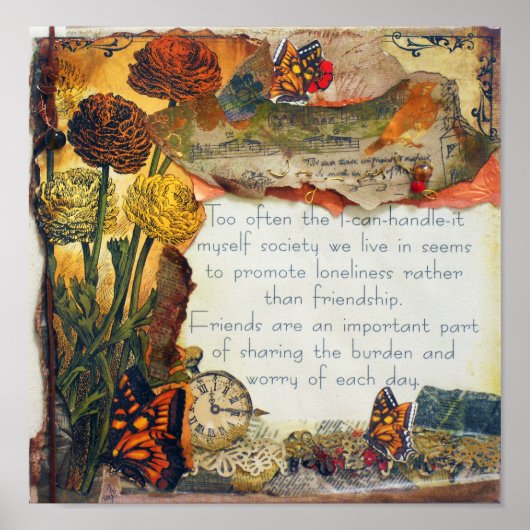 Too often the I-can-handle-it
myself society we live in seems
to promote loneliness rather
than friendship.
Friends are an important part
of sharing the burden and
worry of each day.